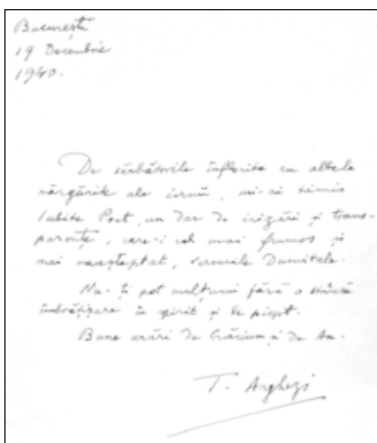 București
19 Decembrie
1940.
De sărbătorile înflorite cu albele
mărgărite ale iernii, mi-ai trimis
Iubite Poet, un dar de irizări și trans-
parențe, care-i cel mai frumos și
mai neașteptat, versurile Dumitale.
Nu-ți pot mulțumi fără o
îmbrățișare în spirit și de piept.
Bune urări de Crăciun și de An.
T. Arghezi